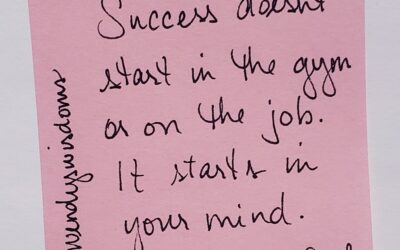 Success doesn't
start in the gym
or on the job.
It starts in
your mind.
wendyswisdoms